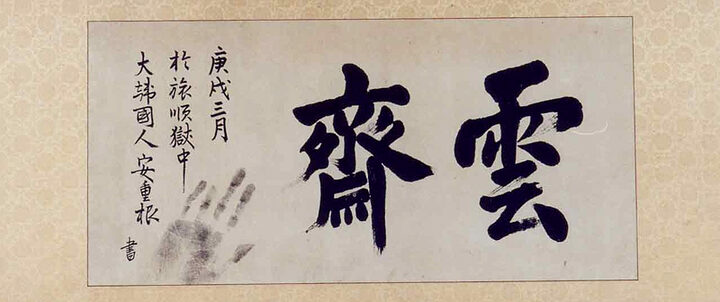 雲齋
庚戌三月
於旅順獄中
大韓國人 安重根 書